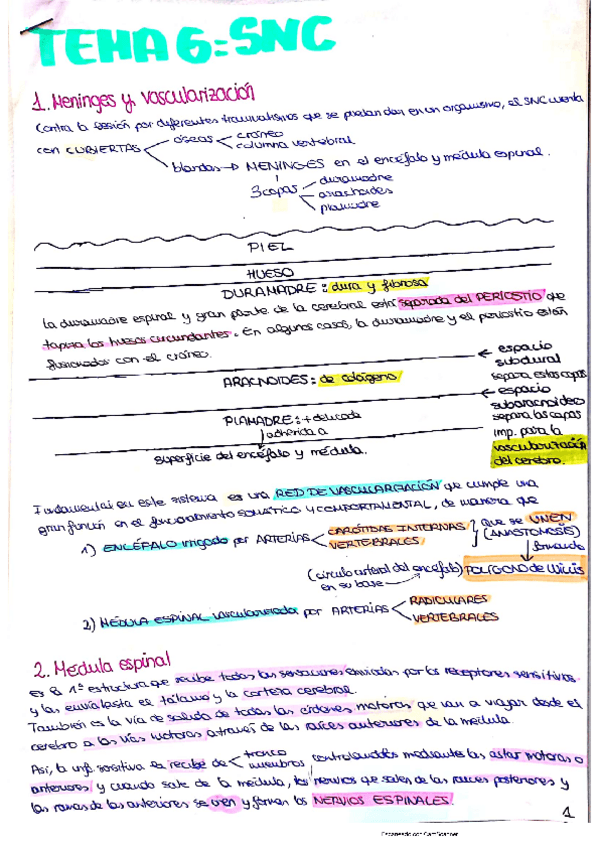 TEMA 6: SNC
1. Meninges y vascularización
Contra la lesión por diferentes traumatismos que se puedan dar en un organismo, el SNC cuenta
con CUBIERTAS óseas cráneo
columna vertebral
blandas → MENINGES en el encéfalo y médula espinal.
3 capas duramadre
aracnoides
piamadre
PIEL
HUESO
DURAMADRE: dura y fibrosa
La duramadre espinal y gran parte de la cerebral está separada del PERIOSTIO que
tapiza los huesos circundantes. En algunos casos, la duramadre y el periostio están
fusionados con el cráneo.
← espacio
subdural
separa estas capas
ARACNOIDES: de colágeno
← espacio
subaracnoideo
separa las capas
imp. para la
vascularización
del cerebro.
PIAMADRE: + delicada
adherida a
superficie del encéfalo y médula.
Fundamental en este sistema es una RED DE VASCULARIZACIÓN que cumple una
gran función en el funcionamiento somático y COMPORTAMENTAL, de manera que
1) ENCÉFALO irrigado por ARTERIAS CARÓTIDAS INTERNAS
VERTEBRALES
que se UNEN
(ANASTOMOSIS)
formando
(círculo arterial del encéfalo) POLÍGONO de Willis
en su base
2) MÉDULA ESPINAL vascularizada por ARTERIAS RADICULARES
VERTEBRALES
2. Médula espinal
es la 1ª estructura que recibe todas las sensaciones enviadas por los receptores sensitivos
y las envía hasta el tálamo y la corteza cerebral.
También es la vía de salida de todas las órdenes motoras que van a viajar desde el
cerebro a las vías motoras a través de las raíces anteriores de la médula.
Así, la inf. sensitiva la recibe de tronco
miembros
controlandolos mediante las astas motoras o
anteriores y cuando sale de la médula, los nervios que salen de las raíces posteriores y
las ramas de las anteriores se unen y forman los NERVIOS ESPINALES.
1
Escaneado con CamScanner